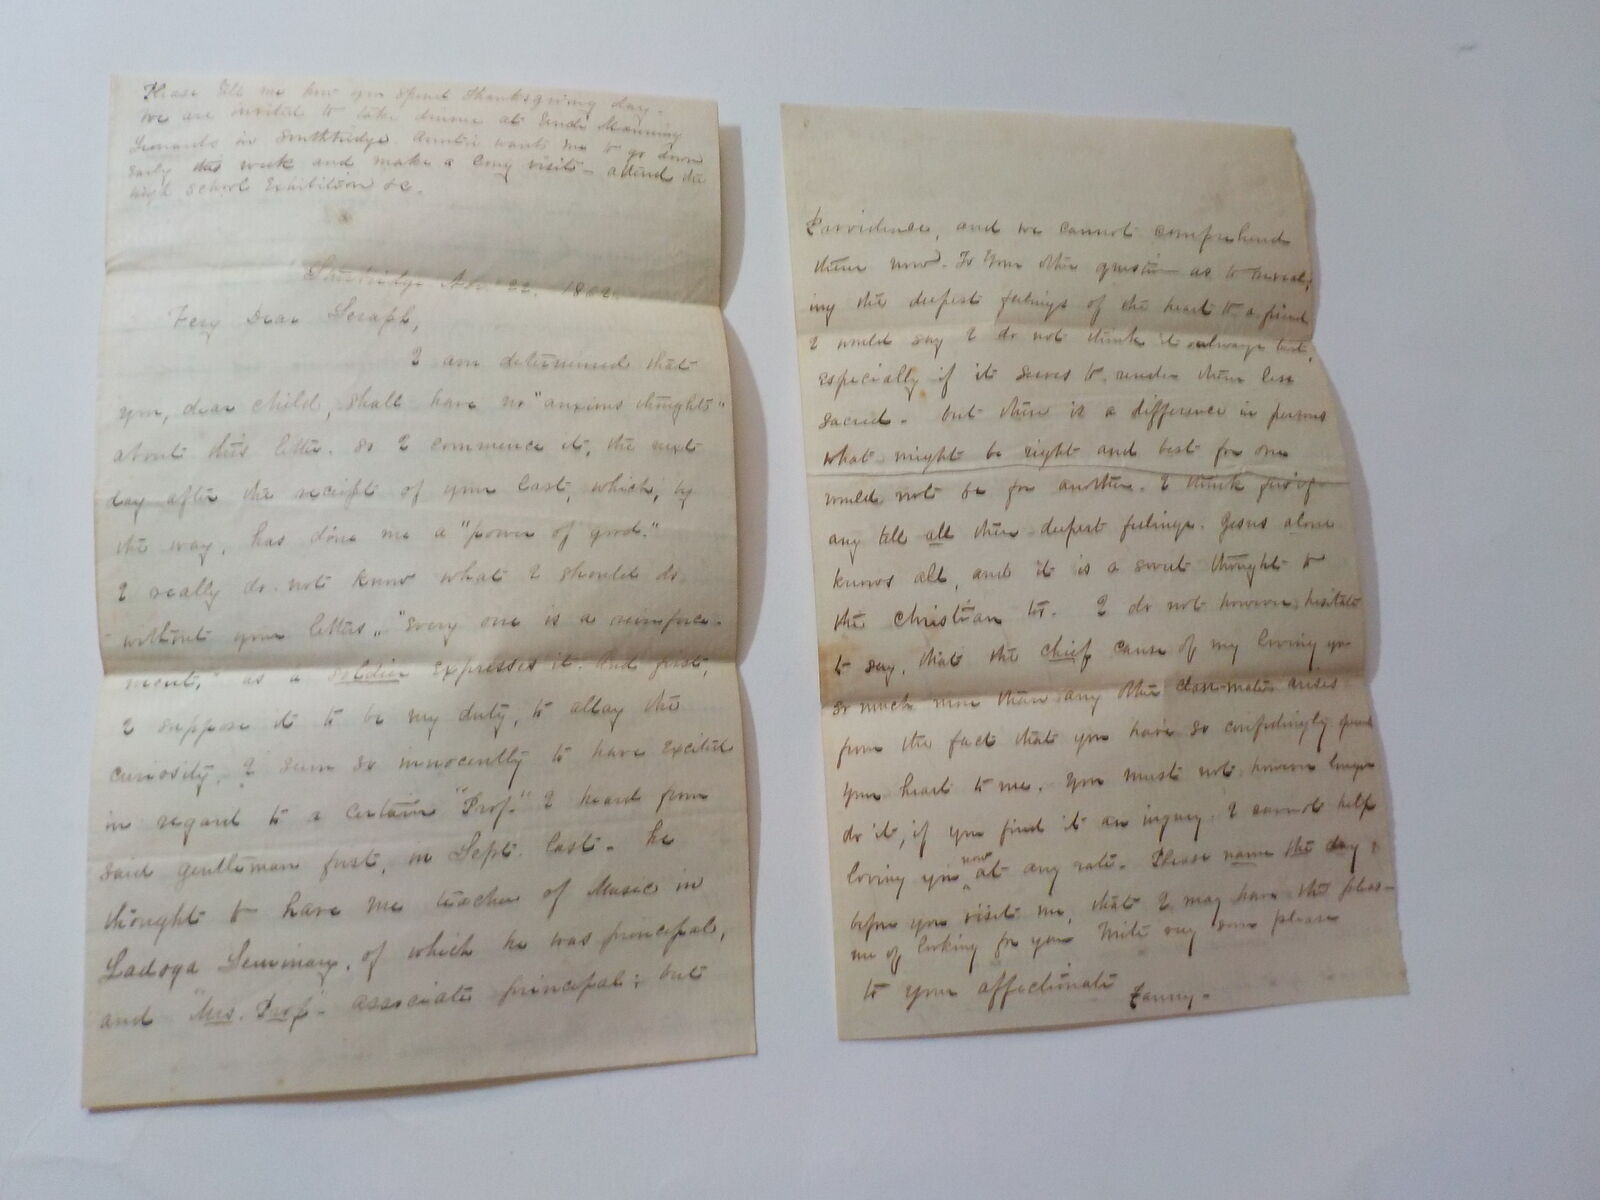 Please tell me how you spend Thanksgiving day -
we are invited to take dinner at Uncle Manning
Leonards in Southbridge. Auntie wants me to go down
early this week and make a long visit - attend the
high school Exhibition &c.
Sturbridge Nov. 22. 1862.
Very Dear Seraph,
I am determined that
you, dear child, shall have no "anxious thoughts"
about this letter. So I commence it, the next
day after the receipt of your last, which, by
the way, has done me a "power of good."
I really do not know what I should do
without your letters, "Every one is a reinforce-
ment," as a soldier expresses it. And first,
I suppose it to be my duty, to allay the
curiosity, I seem so innocently to have excited
in regard to a certain "Prof." I heard from
said gentleman first, in Sept. last. he
thought to have me teacher of Music in
Ladoga Seminary, of which he was principal,
and "Mrs. Prof." associate principal; but
Providence, and we cannot comprehend
them now. To your other question as to reveal-
ing the deepest feelings of the heart to a friend
I would say I do not think it always best,
especially if it serves to render them less
sacred. but there is a difference in persons
what might be right and best for one
would not be for another. I think few if
any tell all their deepest feelings. Jesus alone
knows all, and it is a sweet thought to
the christian too. I do not however, hesitate
to say, that the chief cause of my loving you
so much more than any other class-mate arises
from the fact that you have so confidingly opened
your heart to me. You must not however longer
do it, if you find it an injury. I cannot help
loving you now at any rate. Please name the day
before you visit me, that I may have the pleas-
ure of looking for you Write very soon please
to your affectionate Fanny.